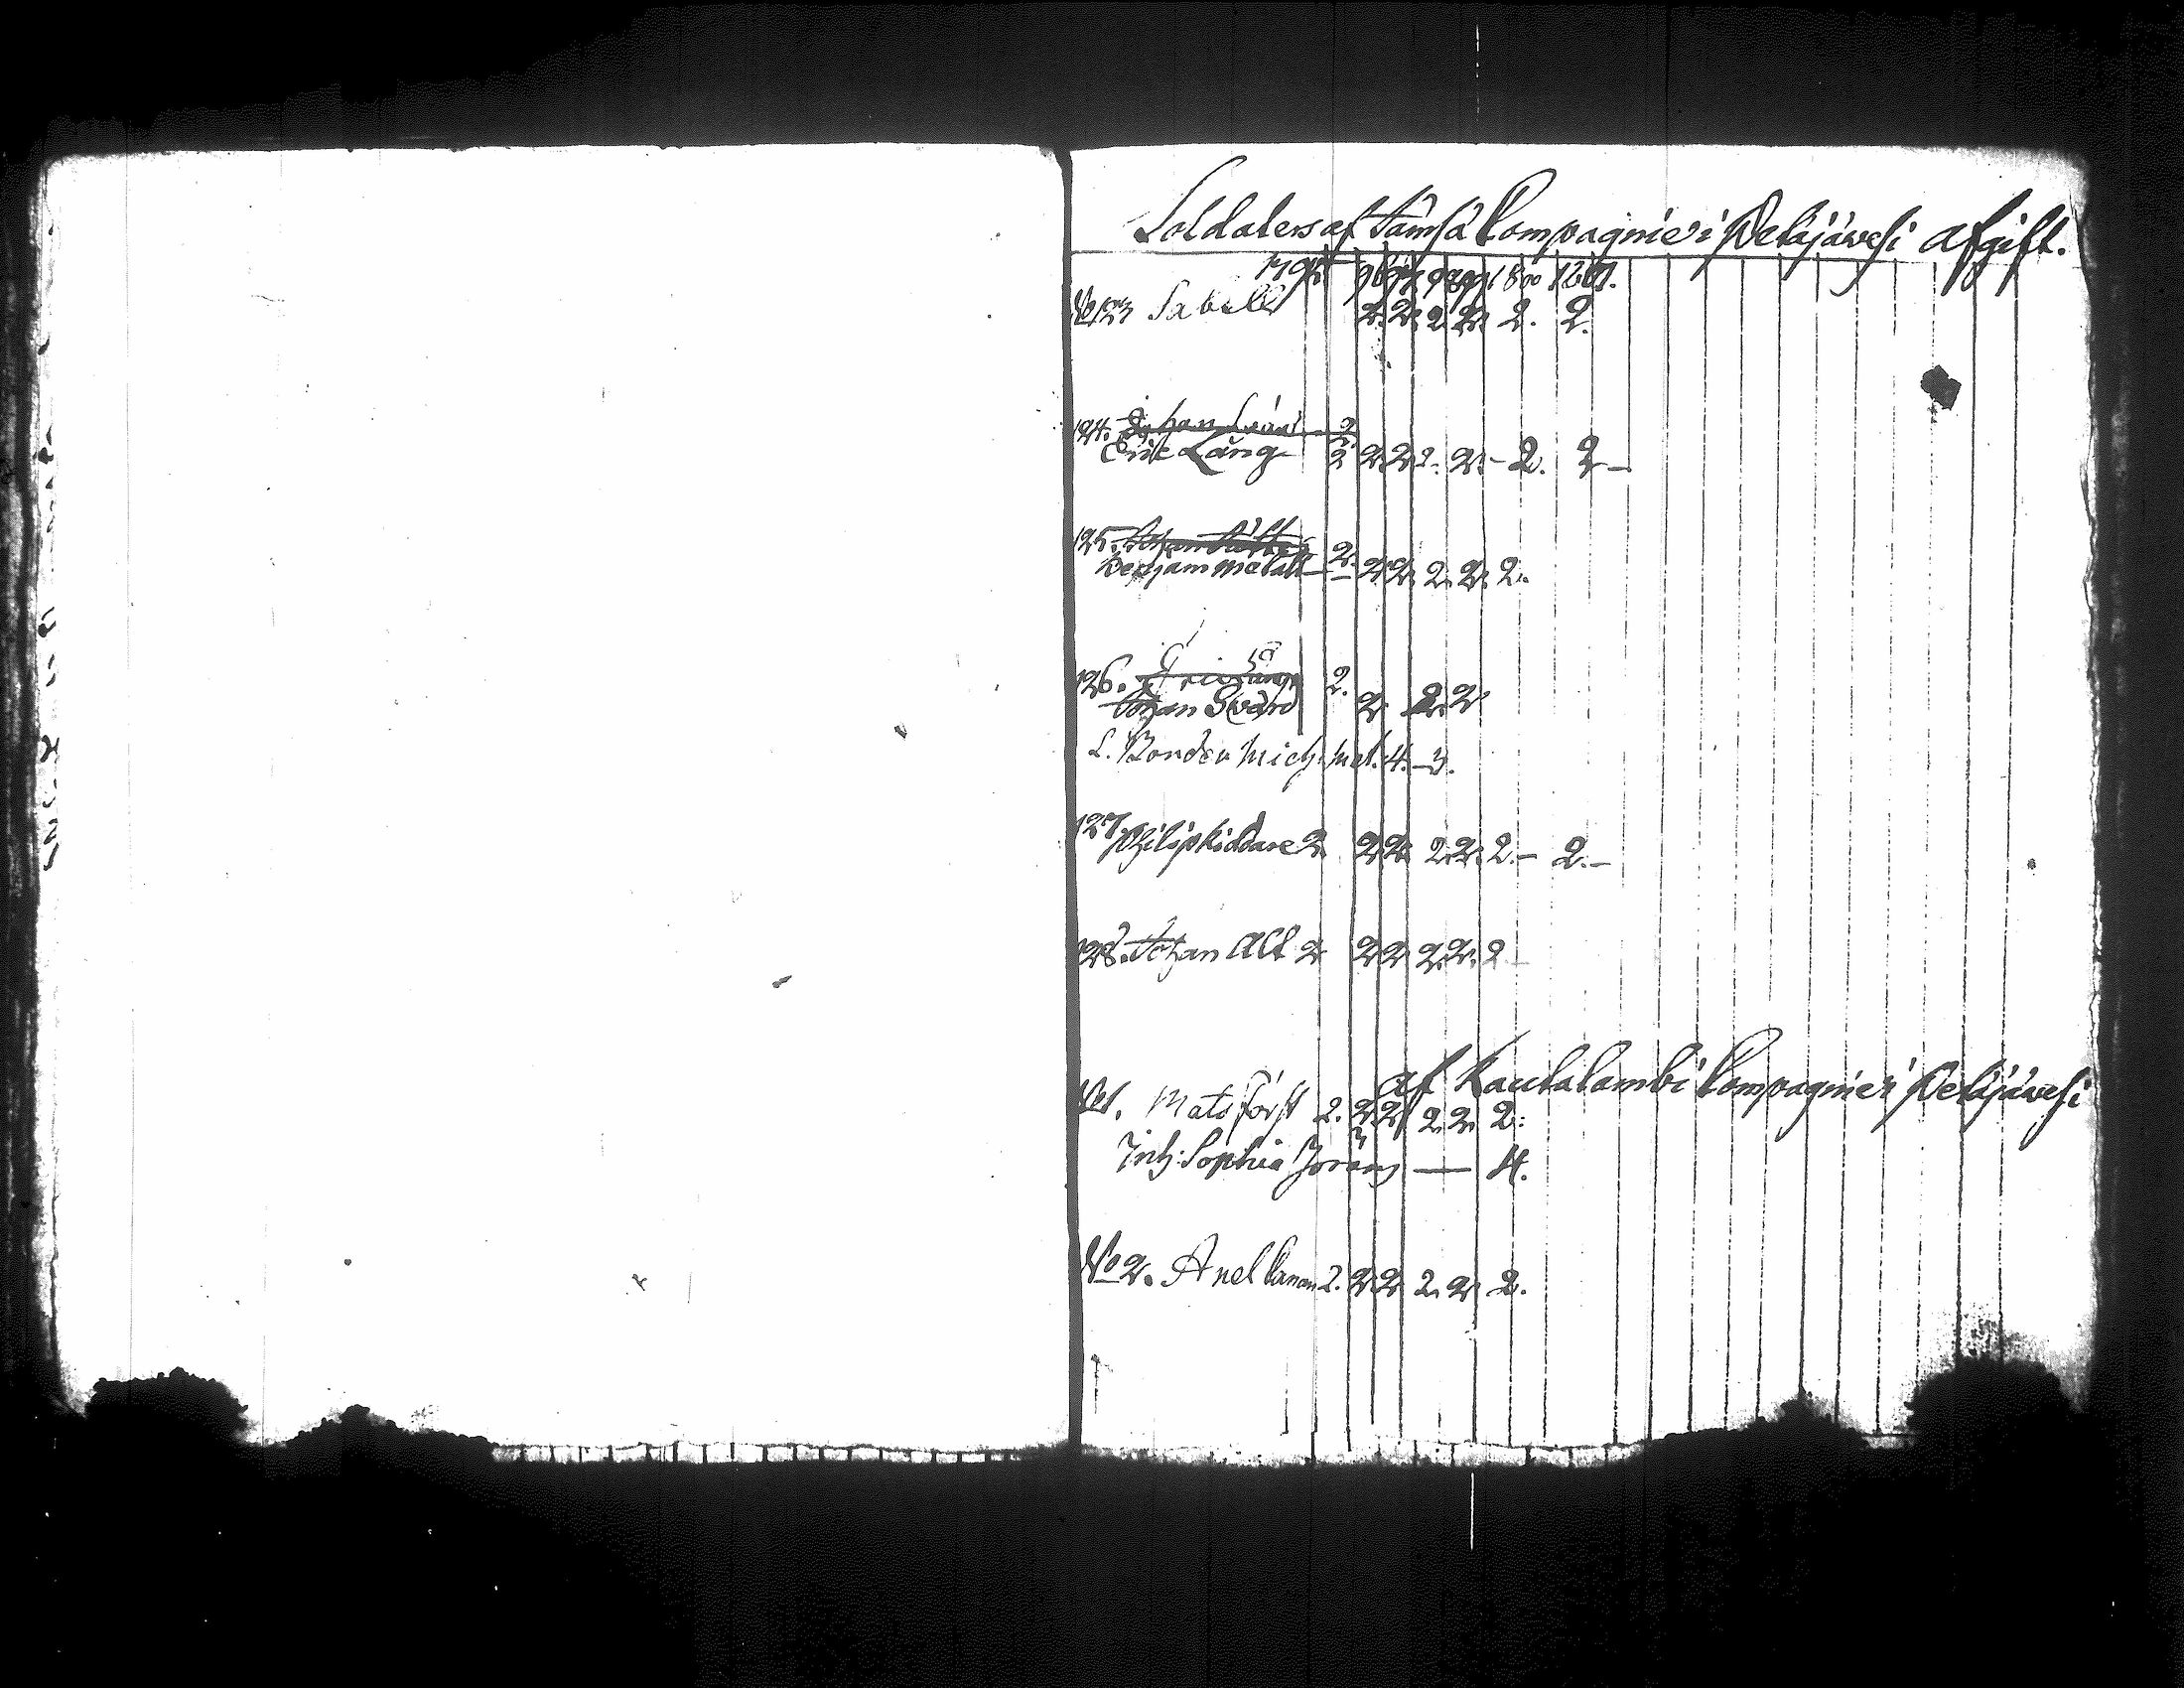 Soldaters af Jämsä Compagnie i Petäjäwesi afgift.
1795 96 97 98 99 1800 1801.
No 123 Sabell 2. 2. 2 2. 2. 2.
124. Johan Svärd 2
Erik Lång 2 2. 2. 2. 2. – 2. 2 –
125. Johan
Benjam Metall – 2. 2. 2. 2. 2. 2.
126. Eric Lång 2.
Johan Svärd 2. 2. 2
L. Bonden Mich. Mel. 4. – 3.
127. Philip Riddare 2. 2. 2. 2. 2. 2. – 2. –
128. Johan Alt 2 2. 2. 2. 2. 2
af Rautalambi Compagnie i Petäjäwesi
No 1. Mats Först 2. 2. 2. 2. 2. 2.
Inh: Sophia — 4.
No 2. Axel 2. 2. 2. 2. 2. 2.